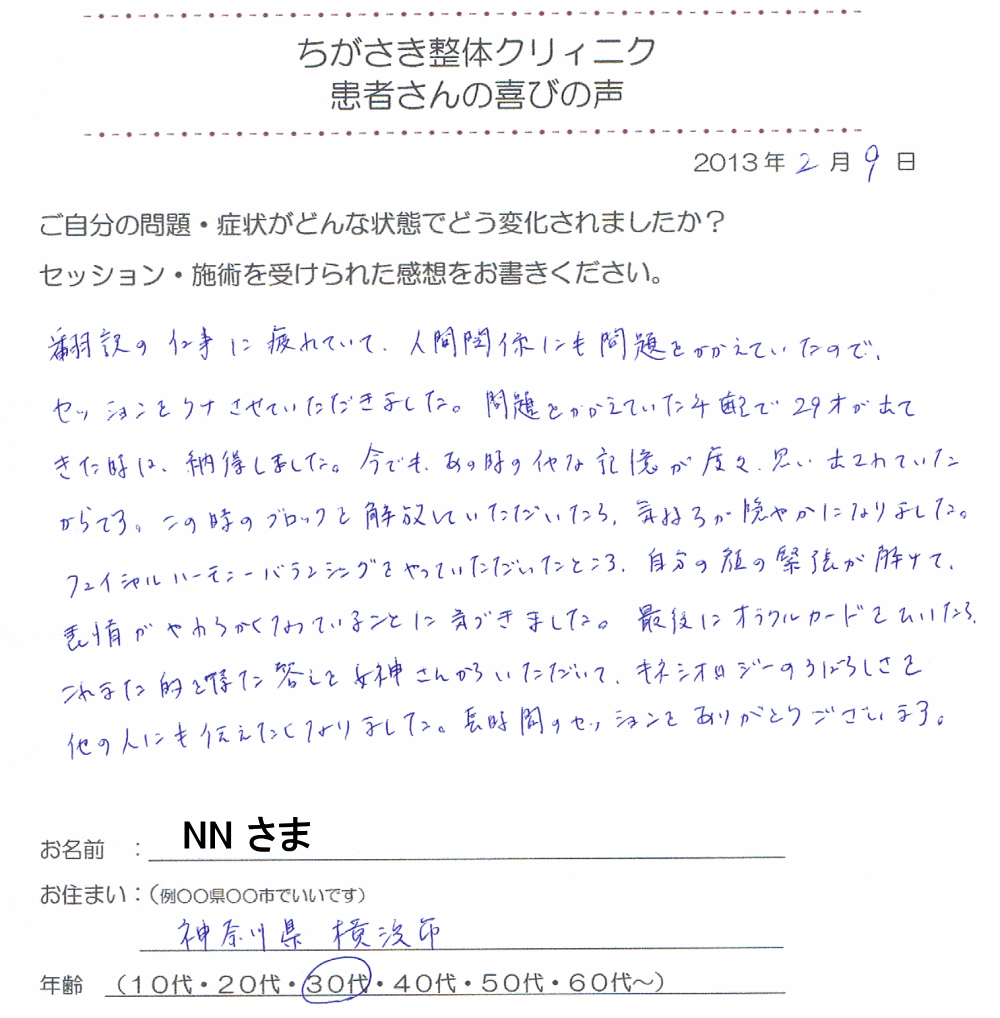 ちがさき整体クリィニク
患者さんの喜びの声
2013年 2 月 9 日
ご自分の問題・症状がどんな状態でどう変化されましたか？
セッション・施術を受けられた感想をお書きください。
翻訳の仕事に疲れていて、人間関係にも問題をかかえていたので、
セッションをうけさせていただきました。問題をかかえていた年齢で29才が出て
きた時は、納得しました。今でも、あの時の嫌な記憶が度々、思い出されていた
からです。この時のブロックを解放していただいたら、気持ちが穏やかになりました。
フェイシャルハーモニーバランシングをやっていただいたところ、自分の顔の緊張が解けて、
表情がやわらかくなっていることに気づきました。最後にオラクルカードをひいたら、
これまた的を得た答えを女神さんからいただいて、キネシオロジーのすばらしさを
他の人にも伝えたくなりました。長時間のセッションをありがとうございます。
お名前 ： NN さま
お住まい：（例〇〇県〇〇市でいいです）
神奈川県 横浜市
年齢 （１０代・２０代・３０代・４０代・５０代・６０代～）